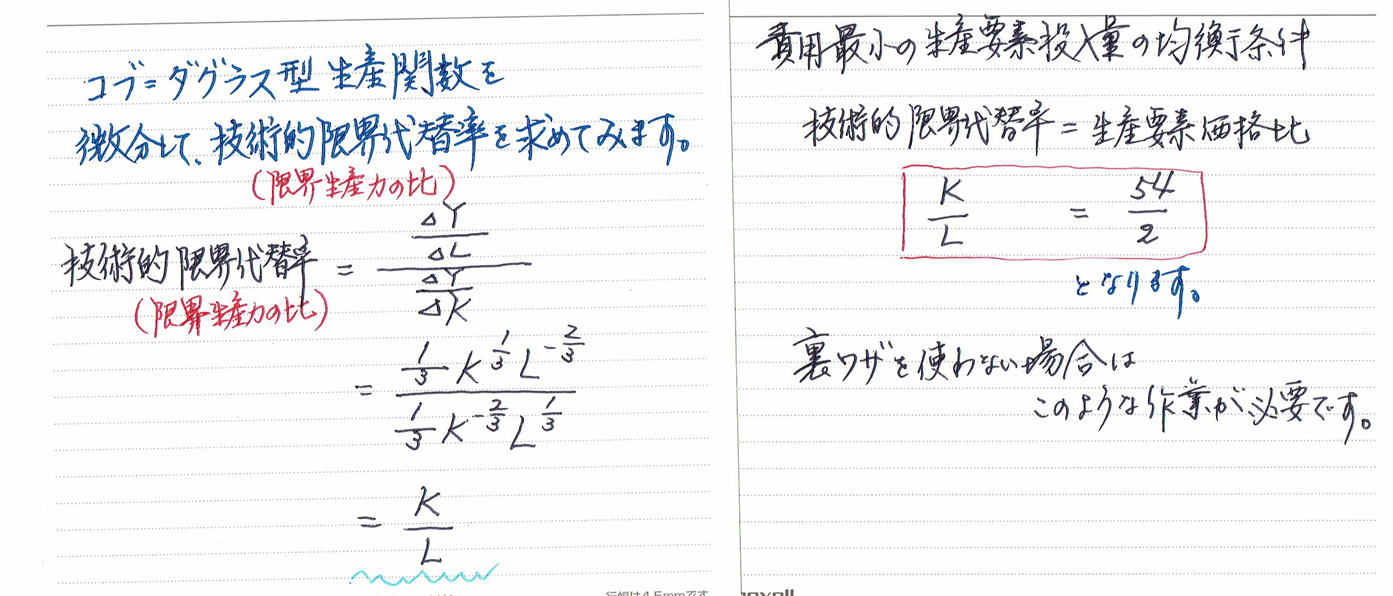 コブ=ダグラス型生産関数を
微分して、技術的限界代替率を求めてみます。
(限界生産力の比)
技術的限界代替率 = ΔY/ΔL / ΔY/ΔK
(限界生産力の比)
= 1/3 K^1/3 L^-2/3 / 1/3 K^-2/3 L^1/3
= K/L
行幅は4.5mmです
費用最小の生産要素投入量の均衡条件
技術的限界代替率=生産要素価格比
K/L = 54/2
となります。
裏ワザを使わない場合は
このような作業が必要です。